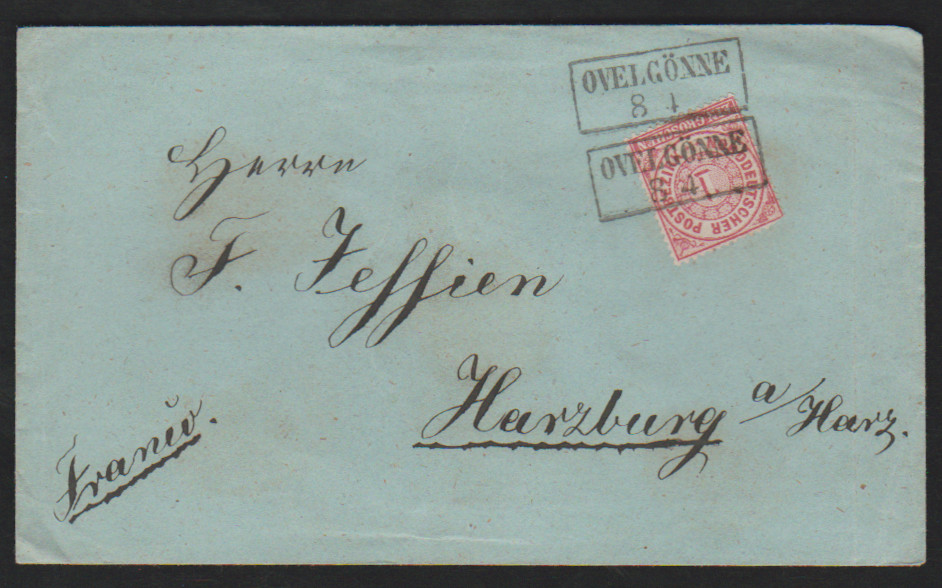 OVELGÖNNE
8 4
OVELGÖNNE
8 4
1
NORDDEUTSCHER POSTBEZIRK
Herrn
F. Jessien
Harzburg a/Harz.
Franco.